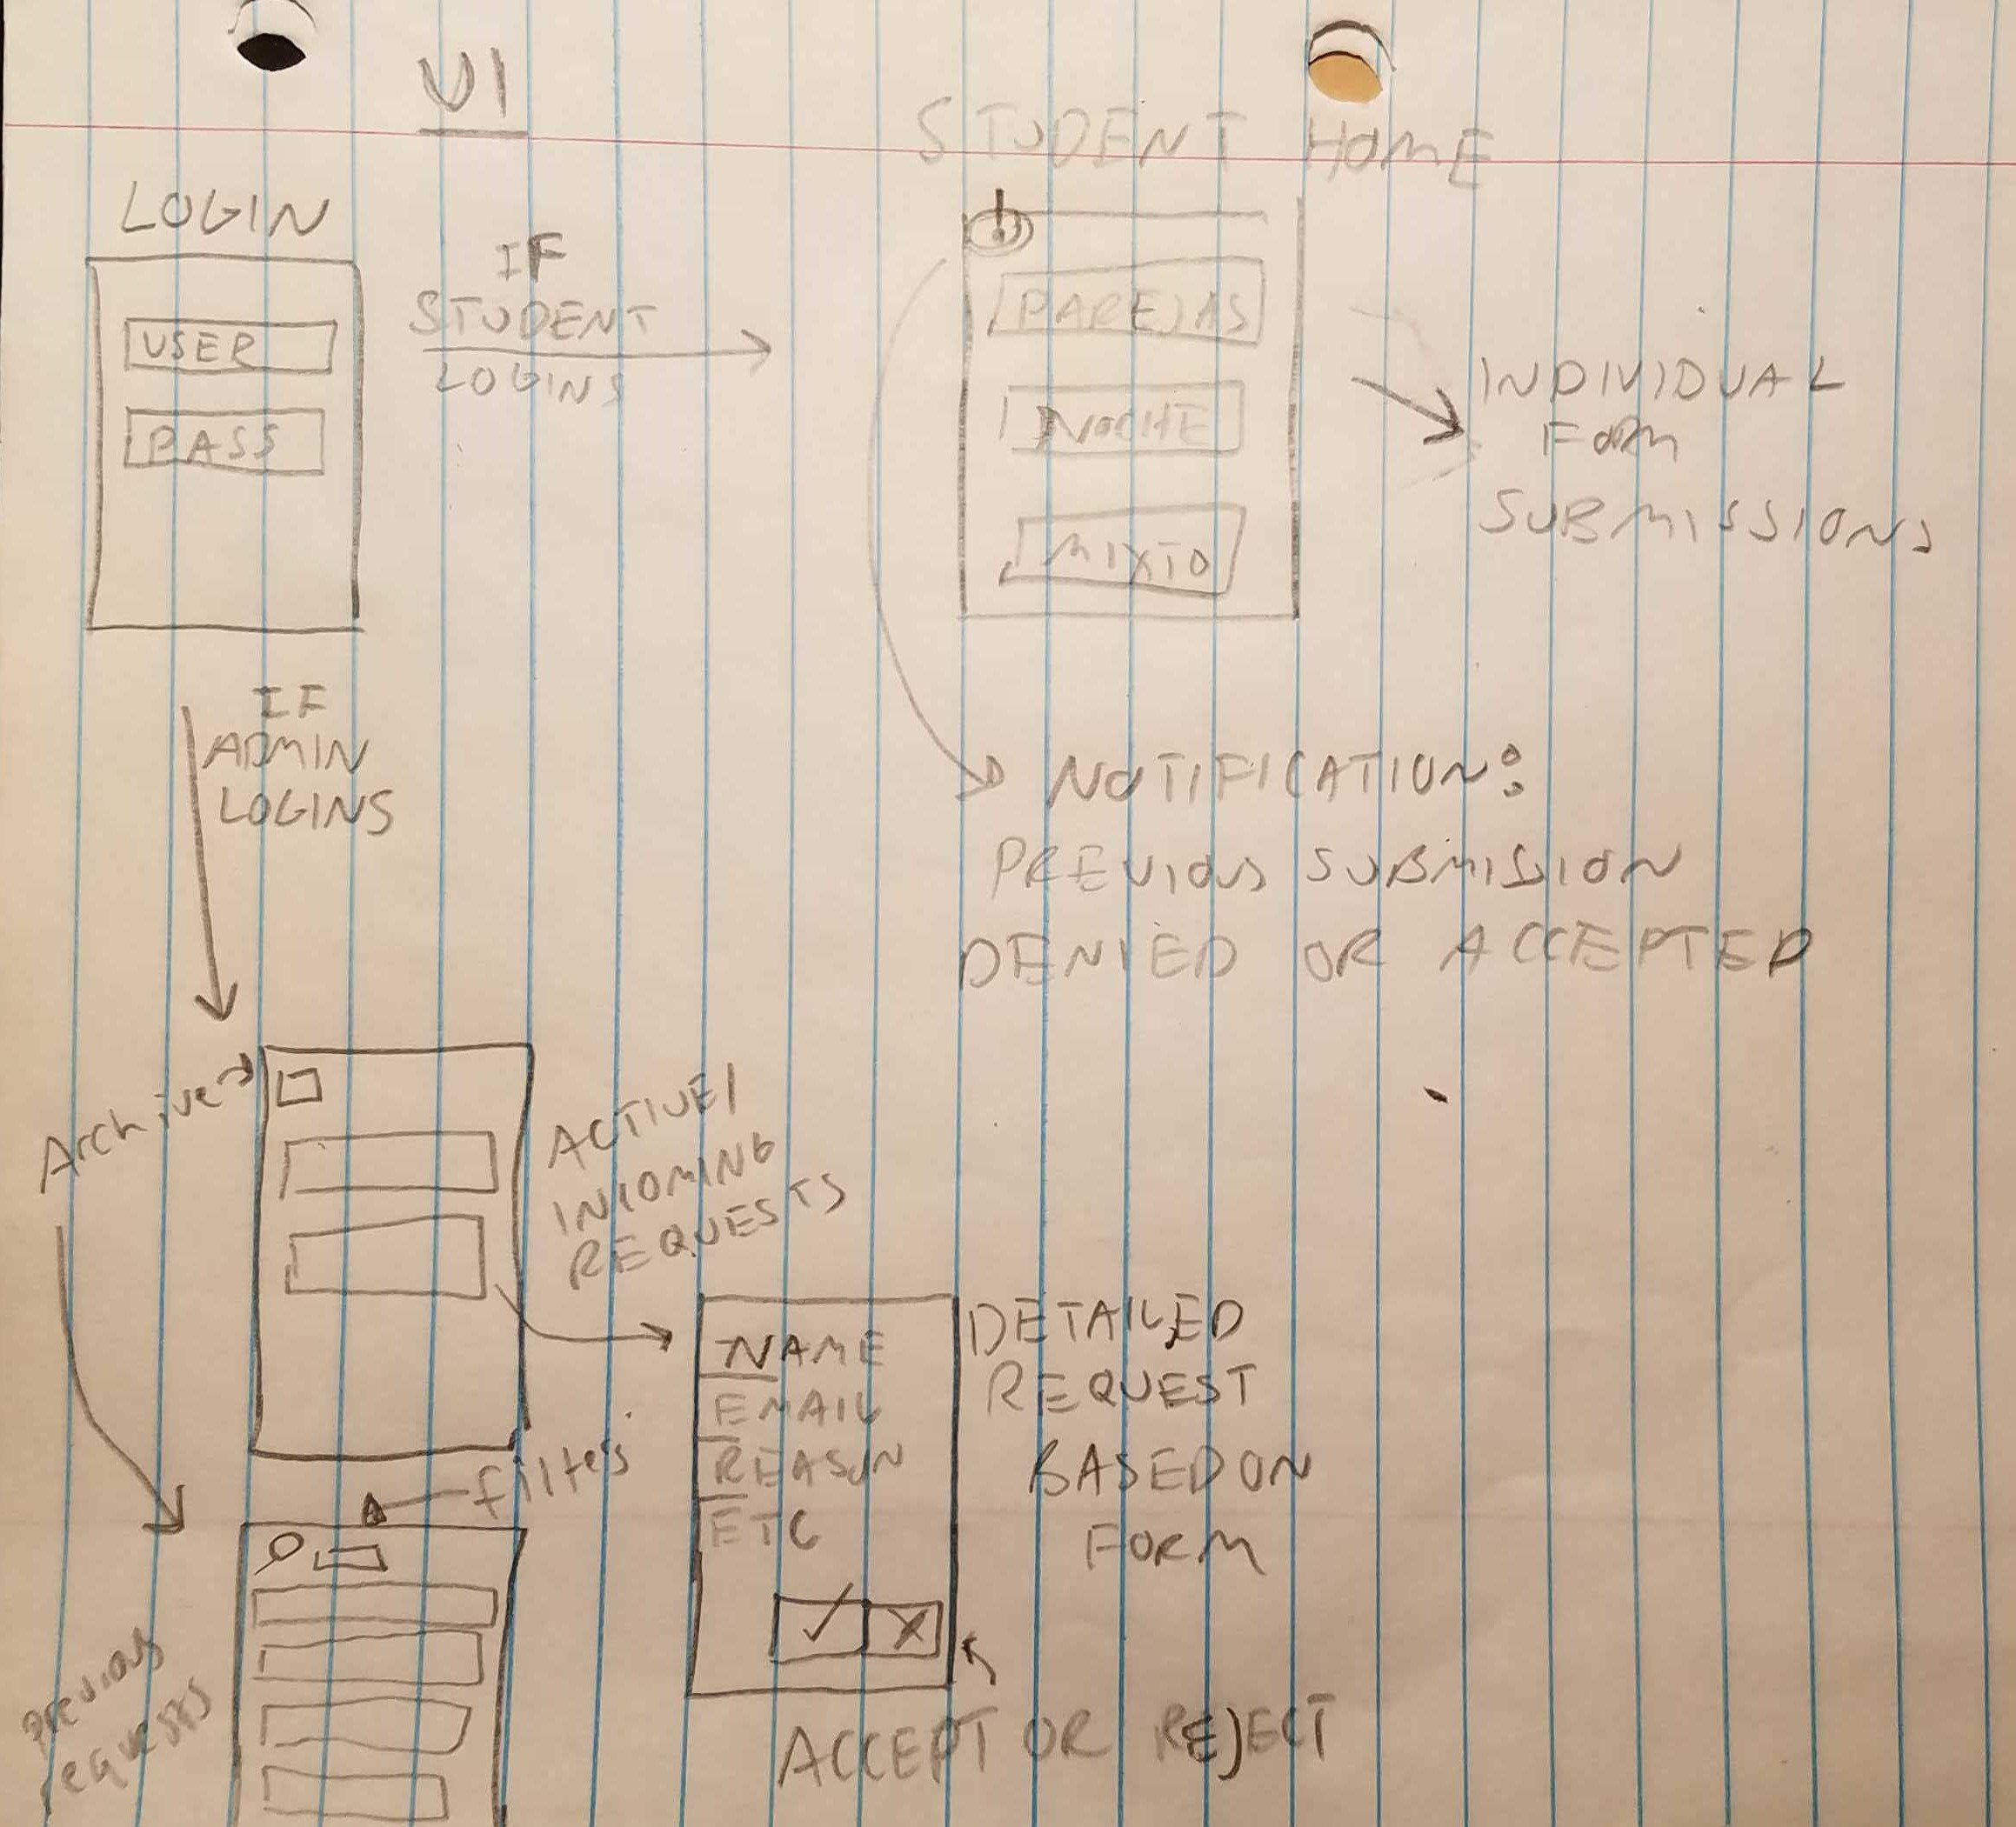 UI
STUDENT HOME
LOGIN
USER
PASS
IF
STUDENT
LOGINS
PAREJAS
NOCHE
MIXTO
INDIVIDUAL
FORM
SUBMISSIONS
NOTIFICATION:
PREVIOUS SUBMISSION
DENIED OR ACCEPTED
IF
ADMIN
LOGINS
Archive
ACTIVE/
INCOMING
REQUESTS
NAME
EMAIL
REASON
ETC
DETAILED
REQUEST
BASED ON
FORM
ACCEPT OR REJECT
Previous
requests